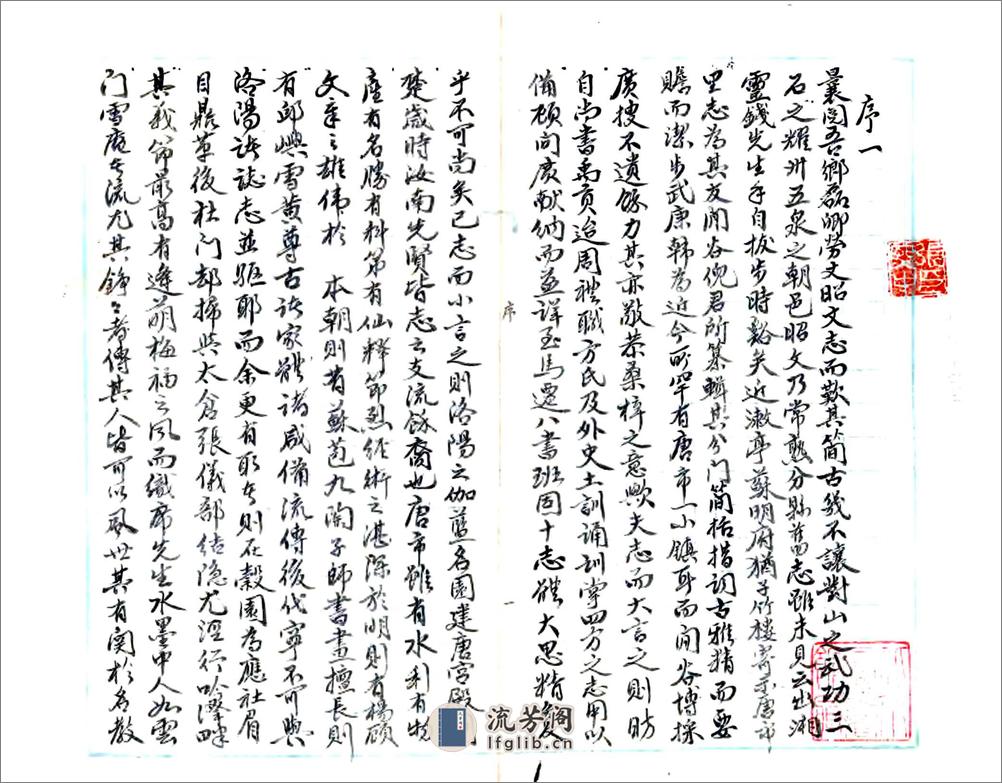 序一
曩閱吾鄉磊卿勞文昭文志而歎其簡古幾不讓對山之武功三
石之耀州五泉之朝邑昭文乃常熟分縣舊志雖未見云出湘
靈錢先生手自拔步時谿矣近漱亭蘇明府猶子竹樓寄示唐市
里志為其友閒谷倪君所纂輯其分門簡括措詞古雅精而要
贍而潔步武康韓為近今所罕有唐市一小鎮耳而閒谷博採
廣搜不遺餘力其亦敬恭桑梓之意歟夫志而大言之則昉
自尚書禹貢迨周禮職方氏及外史土訓誦訓掌四方之志用以
備顧問廣獻納而並詳至馬遷八書班固十志體大思精夐
序
一
乎不可尚矣已志而小言之則洛陽之伽藍名園建唐宮殿
楚歲時汝南先賢皆志之支流餘裔也唐市雖有水利有物
產有名勝有科第有仙釋節烈經術之湛深於明則有楊顧
文章之雄偉於 本朝則有蘇苞九陶子師書畫擅長則
有邱嶼雪黃尊古諸家體諸咸備流傳後代寧不可與
洛陽諸誌志並驅耶而余更有取者則在榖園為應社眉
目鼎革後杜門却掃與太倉張儀部結隱尤涇行吟澤畔
其義節最高有逄萌梅福之風而織席先生水墨中人如雲
門雪庵者流尤其錚々者傳其人皆可以風世其有関於名教
流芳阁
lfglib.cn
1